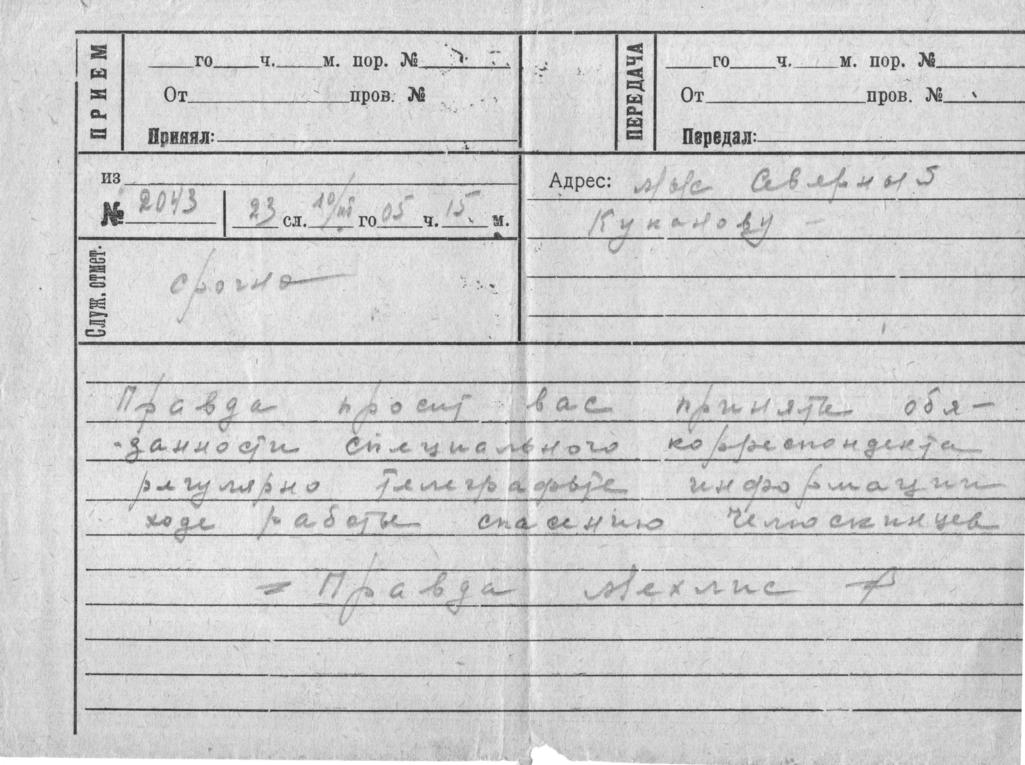 ПРИЕМ
го ч. м. пор. №
От пров. №
Принял:
ПЕРЕДАЧА
го ч. м. пор. №
От пров. №
Передал:
из
№ 2043 23 сл. 10/III го 05 ч. 15 м.
Служ. отмет.
срочно
Адрес: мыс Северный
Куканову —
Правда просит вас принять обя-
-занности специального корреспондента
регулярно телеграфьте информации
ходе работы спасению Челюскинцев
= Правда Мехлис